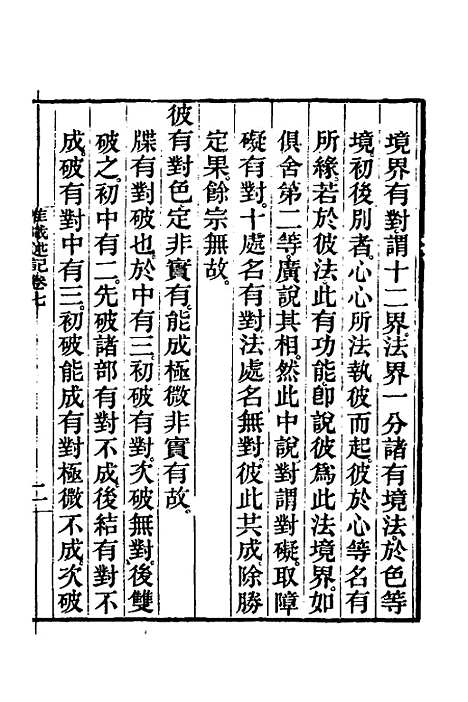 境界有對謂十二界法界一分諸有境法。於色等
境。初後別者。心心所法執彼而起。彼於心等名有
所緣。若於彼法。此有功能。卽說彼爲此法境界。如
俱舍第二等。廣說其相。然此中說對謂對礙。取障
礙有對。十處名有對法處名無對。彼此共成除勝
定果。餘宗無故。
彼有對色定非實有。能成極微非實有故。
牒有對破也。於中有三。初破有對。次破無對。後雙
破之。初中有二。先破諸部有對不成。後結有對不
成。破有對中有三。初破能成有對極微不成。次破
唯識述記卷七